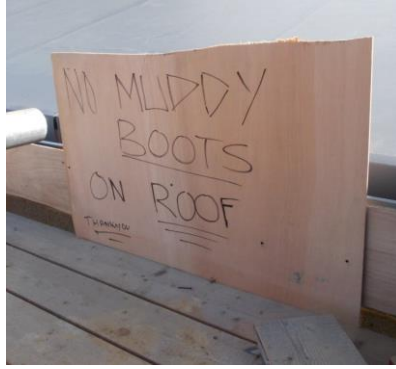 NO MUDDY
BOOTS
ON ROOF
THANKYOU